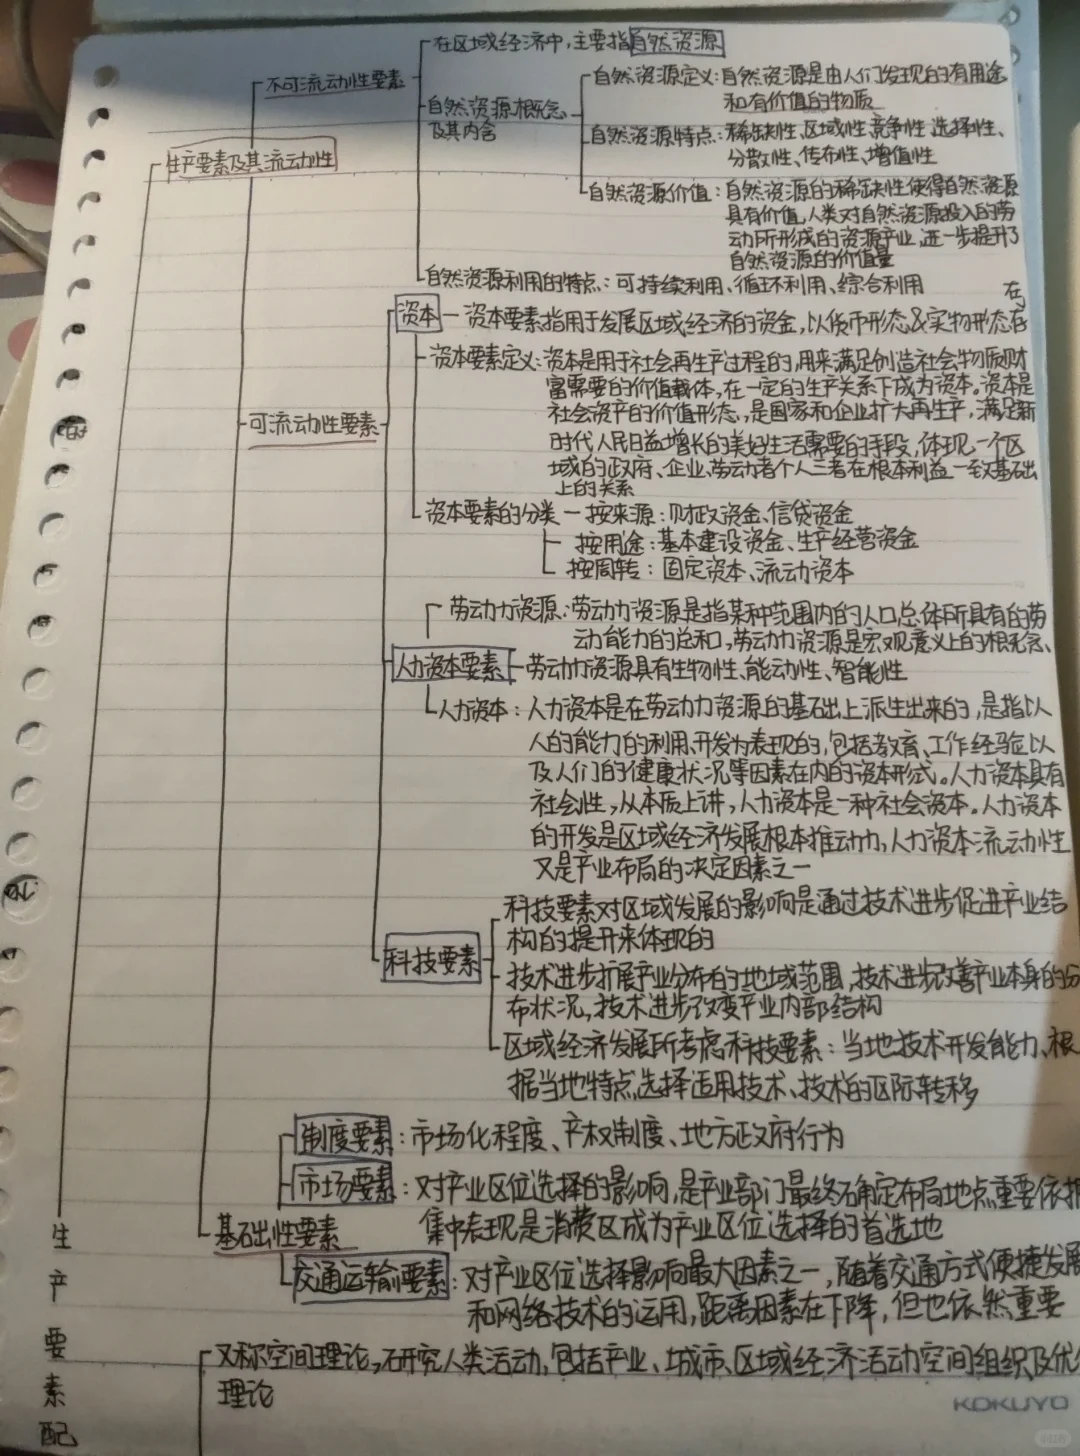 在区域经济中,主要指自然资源
不可流动性要素
自然资源定义:自然资源是由人们发现的有用途
和有价值的物质
自然资源概念
及其内含
自然资源特点:稀缺性、区域性、竞争性、选择性、
分散性、传布性、增值性
生产要素及其流动性
自然资源价值:自然资源的稀缺性使得自然资源
具有价值,人类对自然资源投入的劳
动所形成的资源产业,进一步提升了
自然资源的价值量
自然资源利用的特点:可持续利用、循环利用、综合利用
在
资本 — 资本要素指用于发展区域经济的资金,以货币形态&实物形态存
资本要素定义:资本是用于社会再生产过程的,用来满足创造社会物质财
富需要的价值载体,在一定的生产关系下成为资本。资本是
社会资产的价值形态,是国家和企业扩大再生产,满足新
可流动性要素
时代人民日益增长的美好生活需要的手段,体现一个区
域的政府、企业、劳动者个人三者在根本利益一致基础
上的关系
资本要素的分类 — 按来源:财政资金、信贷资金
按用途:基本建设资金、生产经营资金
按周转:固定资本、流动资本
劳动力资源:劳动力资源是指某种范围内的人口总体所具有的劳
动能力的总和,劳动力资源是宏观意义上的概念、
人力资本要素
劳动力资源具有生物性、能动性、智能性
人力资本:人力资本是在劳动力资源的基础上派生出来的,是指以
人的能力的利用、开发为表现的,包括教育、工作经验以
及人们的健康状况等因素在内的资本形式。人力资本具有
社会性,从本质上讲,人力资本是一种社会资本。人力资本
的开发是区域经济发展根本推动力,人力资本流动性
又是产业布局的决定因素之一
科技要素对区域发展的影响是通过技术进步促进产业结
构的提升来体现的
科技要素
技术进步扩展产业分布的地域范围,技术进步改善产业本身的分
布状况,技术进步改变产业内部结构
区域经济发展所考虑科技要素:当地技术开发能力、根
据当地特点选择适用技术、技术的区际转移
制度要素:市场化程度、产权制度、地方政府行为
市场要素:对产业区位选择的影响,是产业部门最终确定布局地点重要依据
集中表现是消费区成为产业区位选择的首选地
基础性要素
交通运输要素:对产业区位选择影响最大因素之一,随着交通方式便捷发展
和网络技术的运用,距离因素在下降,但也依然重要
又称空间理论,研究人类活动,包括产业、城市、区域经济活动空间组织及优化
理论
生
产
要
素
配
KOKUYO
小红书